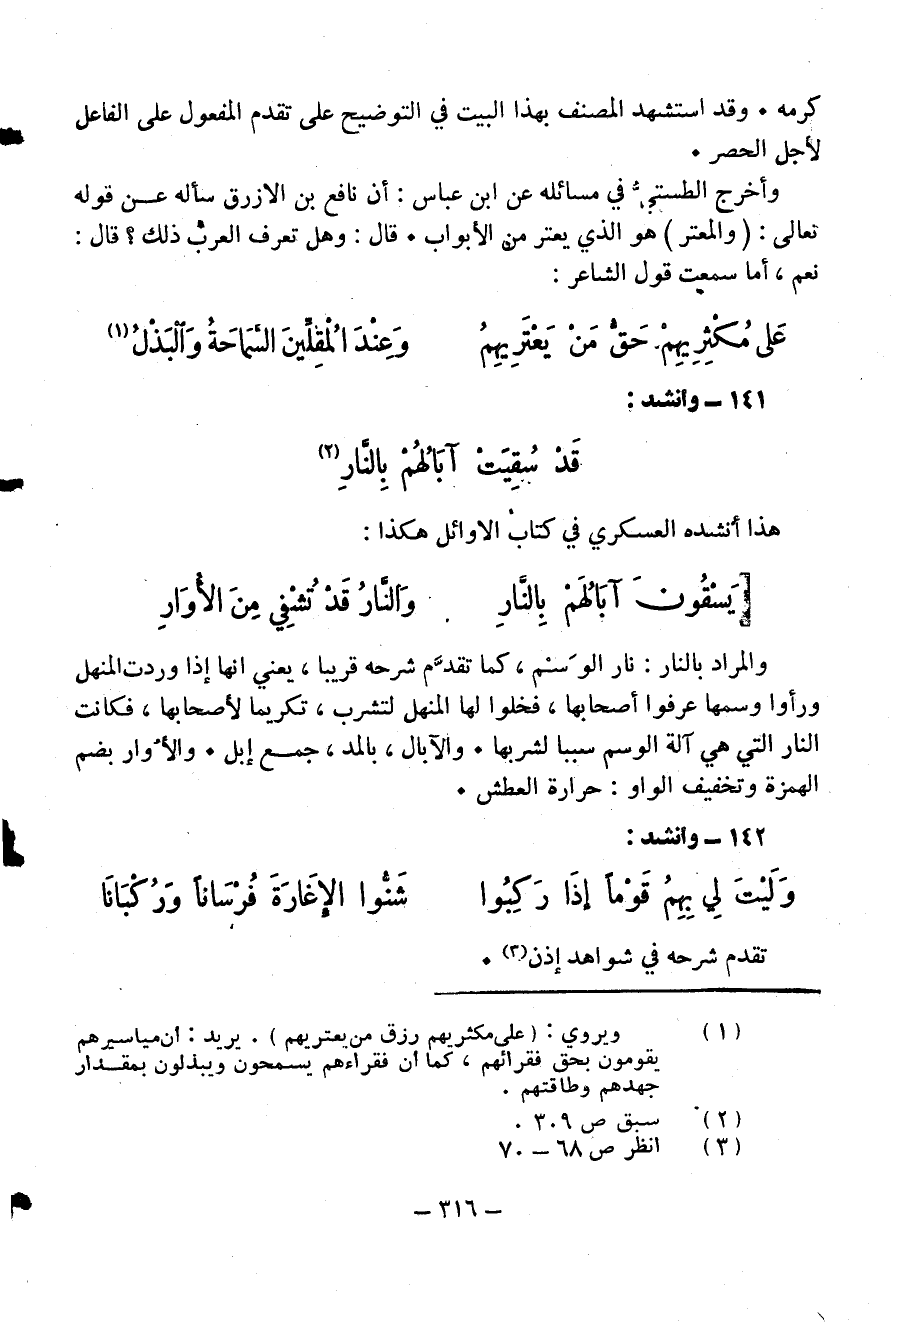 كرمه • وقد استشهد المصنف بهذا البيت في التوضيح على تقدم المفعول على الفاعل
لأجل الحصر •
وأخرج الطستي في مسائله عن ابن عباس : أن نافع بن الازرق سأله عن قوله
تعالى : ( والمعتر ) هو الذي يعتر من الأبواب • قال : وهل تعرف العرب ذلك ؟ قال :
نعم ، أما سمعت قول الشاعر :
عَلى مُكْثِرِيهِمْ حَقُّ مَنْ يَعْتَرِيهِمُ وَعِنْدَ الْمُقِلِّينَ السَّمَاحَةُ وَالْبَذْلُ (١)
١٤١ – وأنشد :
قَدْ سُقِيَتْ آبَالُهُمْ بِالنَّارِ (٢)
هذا أنشده العسكري في كتاب الاوائل هكذا :
[ يَسْقُونَ آبَالَهُمْ بِالنَّارِ وَالنَّارُ قَدْ تُشْفِي مِنَ الأُوَارِ
والمراد بالنار : نار الوَسْم ، كما تقدَّم شرحه قريبا ، يعني انها إذا وردت المنهل
ورأوا وسمها عرفوا أصحابها ، فخلوا لها المنهل لتشرب ، تكريما لأصحابها ، فكانت
النار التي هي آلة الوسم سببا لشربها • والآبال ، بالمد ، جمع إبل • والأُوار بضم
الهمزة وتخفيف الواو : حرارة العطش •
١٤٢ – وأنشد :
وَلَيْتَ لِي بِهِمُ قَوْماً إذَا رَكِبُوا شَنُّوا الإِغَارَةَ فُرْسَاناً وَرُكْبَانَا
تقدم شرحه في شواهد إذن (٣) •
(١) ويروي : ( على مكثريهم رزق من يعتريهم ) . يريد : أن مياسيرهم
يقومون بحق فقرائهم ، كما أن فقراءهم يسمحون ويبذلون بمقدار
جهدهم وطاقتهم .
(٢) سبق ص ٣٠٩ .
(٣) انظر ص ٦٨ – ٧٠
– ٣١٦ –